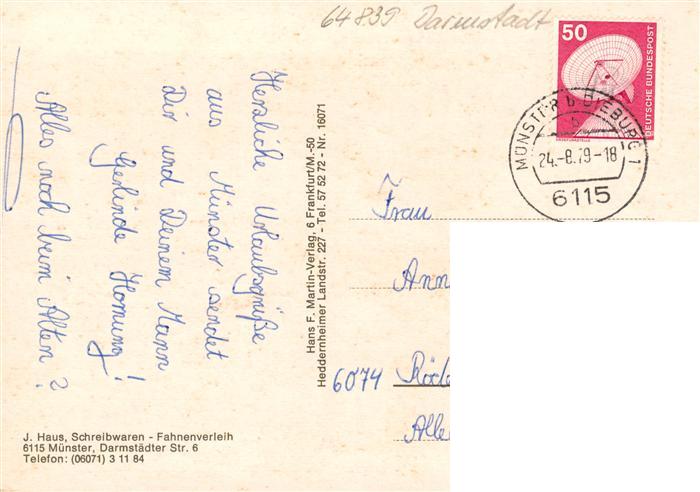 64839 Darmstadt
50
DEUTSCHE BUNDESPOST
MÜNSTER b DIEBURG 1
b
24.-8.79-18
6115
Herzliche Urlaubsgrüße
aus Münster sendet
Dir und Deinem Mann
Gerlinde Hornung!
Alles noch beim Alten?
Hans F. Martin-Verlag, 6 Frankfurt/M.-50
Heddernheimer Landstr. 227 - Tel: 57 52 72 - Nr. 16071
Frau
Ann
6074 Röd
Alle
J. Haus, Schreibwaren - Fahnenverleih
6115 Münster, Darmstädter Str. 6
Telefon: (06071) 3 11 84